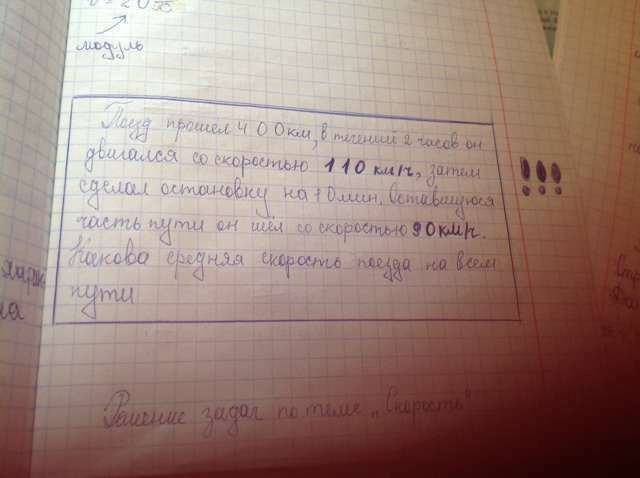 модуль
Поезд прошел 400км, в течений 2 часов он
двигался со скоростью 110 км/ч, затем
сделал остановку на 10мин. Оставшуюся
часть пути он шёл со скоростью 90км/ч.
Какова средняя скорость поезда на всем
пути
!!!
Решение задач по теме „Скорость"